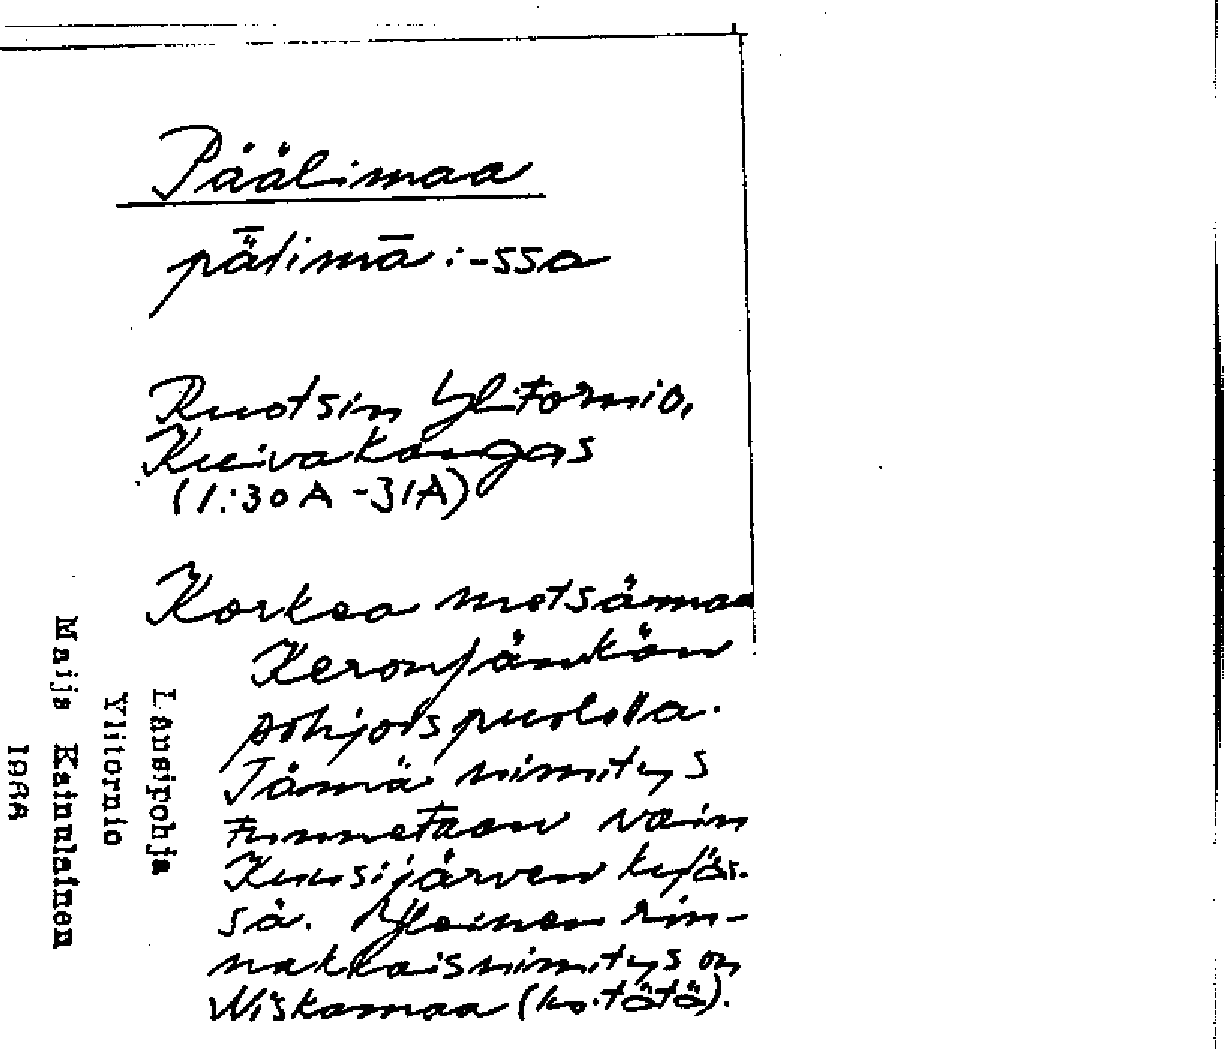 Päälimaa
pälimǟ :-ssa
Ruotsin Ylitornio,
Kuivakangas
(1:30A -31A)
Korkea metsämaa
Keronjänkän
pohjoispuolella.
Tämä nimitys
tunnetaan vain
Kuusijärven kyläs-
sä. Yleinen rin-
nakkaisnimitys on
Niskamaa (ks. tätä).
Länsipohja
Ylitornio
Maija Kainulainen
1988